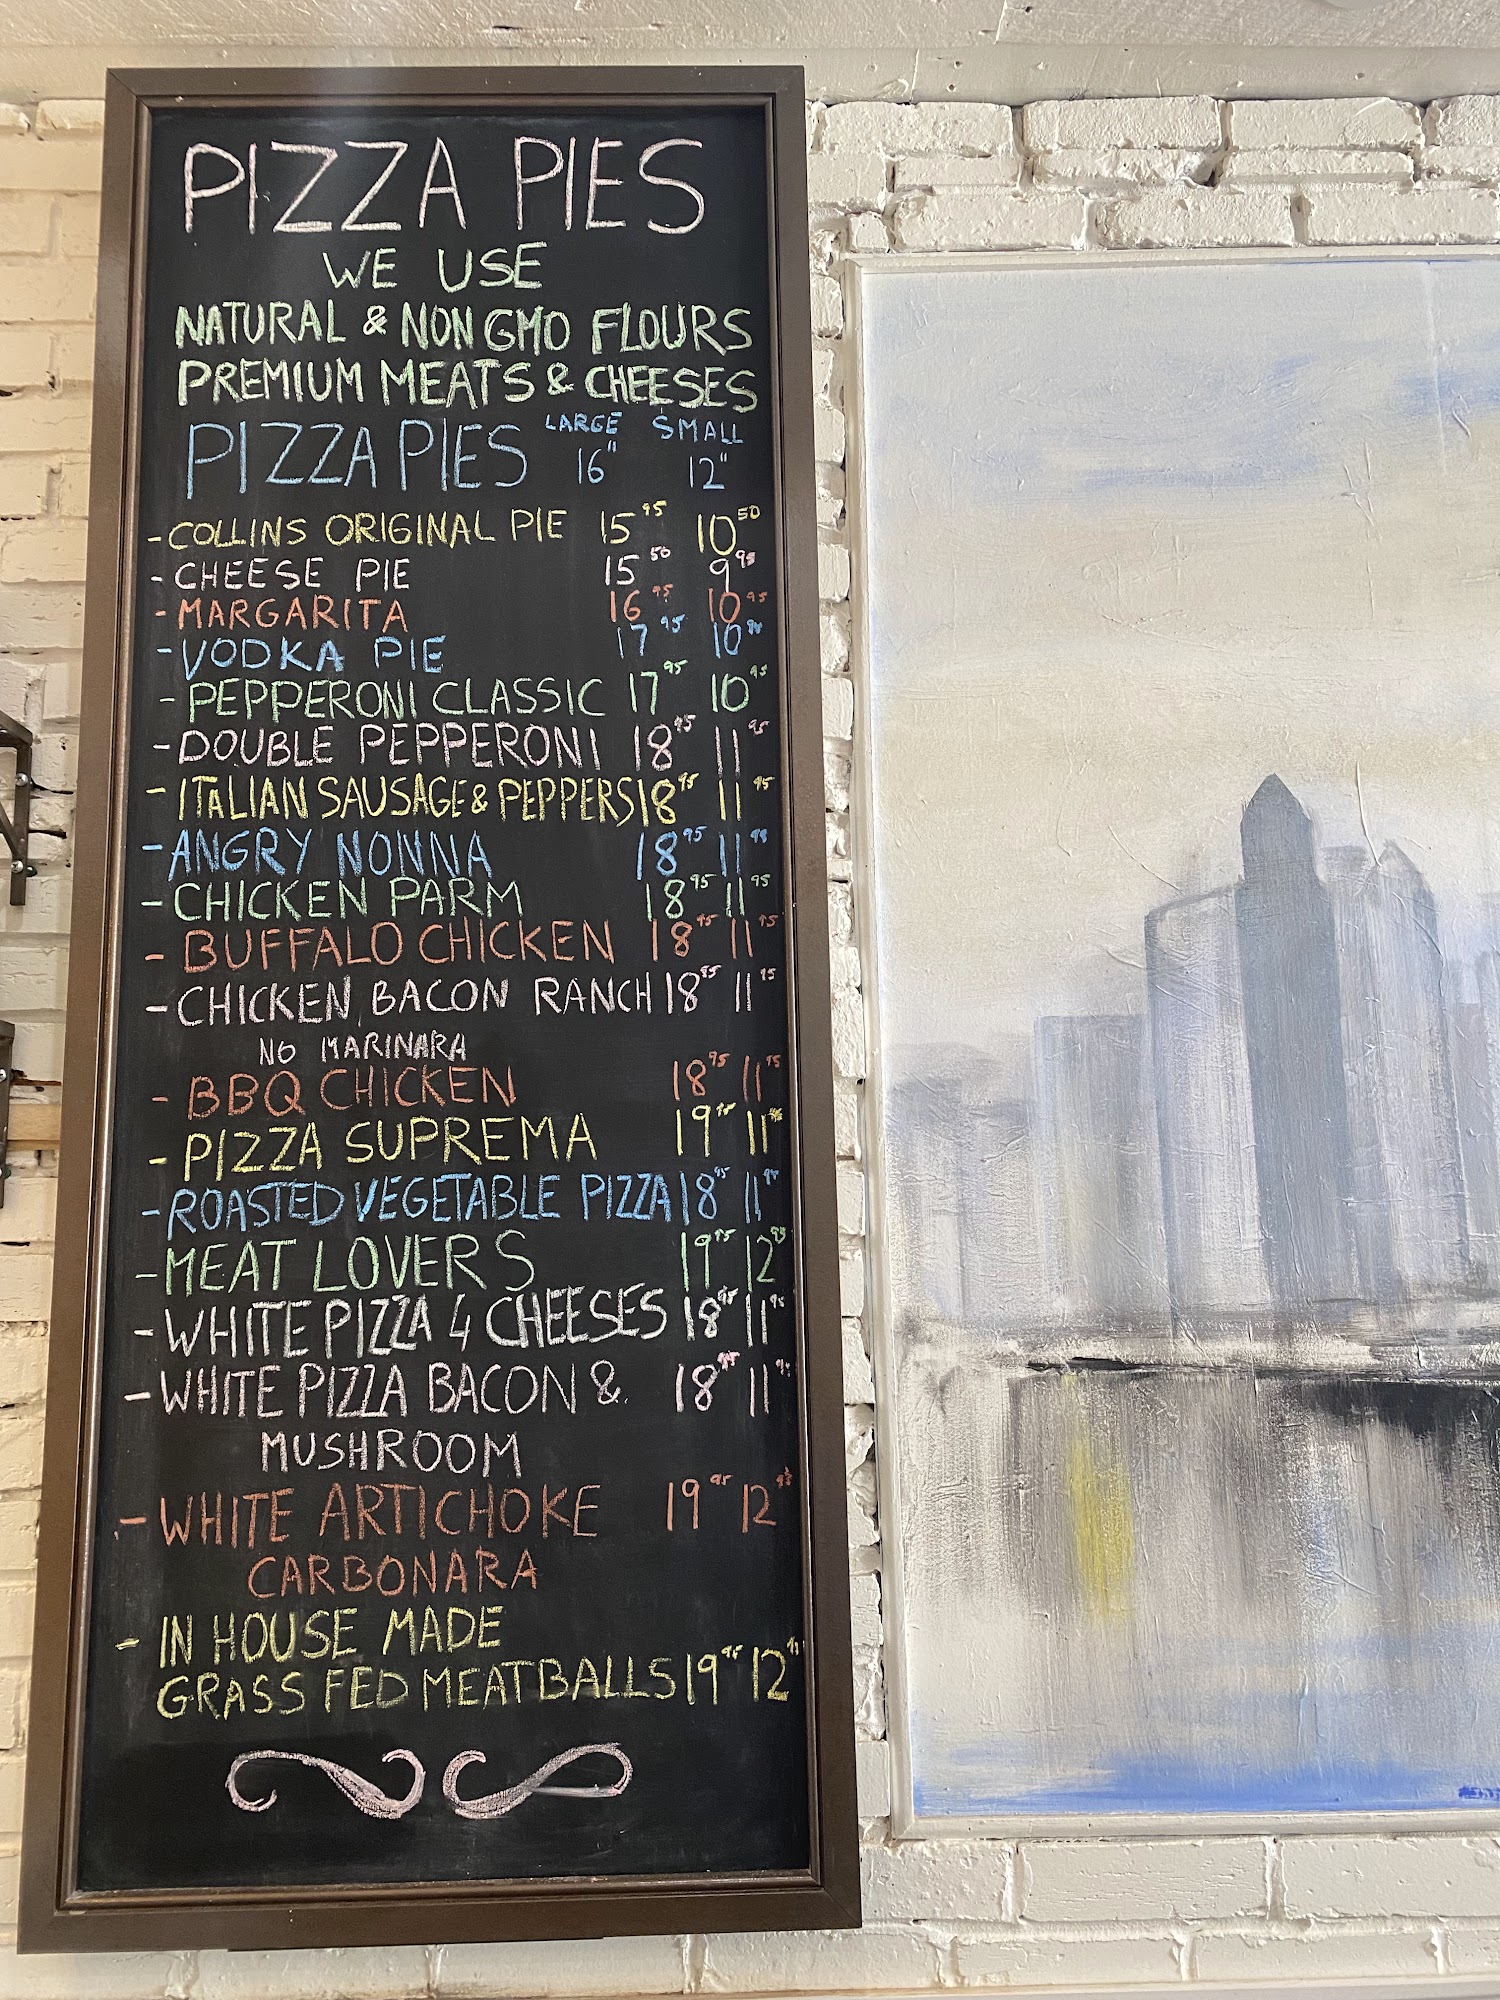 PIZZA PIES
WE USE
NATURAL & NON GMO FLOURS
PREMIUM MEATS & CHEESES
PIZZA PIES LARGE 16" SMALL 12"
- COLLINS ORIGINAL PIE 15 95 10 50
- CHEESE PIE 15 50 9 95
- MARGARITA 16 95 10 95
- VODKA PIE 17 95 10 95
- PEPPERONI CLASSIC 17 95 10 95
- DOUBLE PEPPERONI 18 95 11 95
- ITALIAN SAUSAGE & PEPPERS 18 95 11 95
- ANGRY NONNA 18 95 11 95
- CHICKEN PARM 18 95 11 95
- BUFFALO CHICKEN 18 95 11 95
- CHICKEN BACON RANCH 18 95 11 95
NO MARINARA
- BBQ CHICKEN 18 95 11 95
- PIZZA SUPREMA 19 95 11
- ROASTED VEGETABLE PIZZA 18 95 11 95
- MEAT LOVERS 19 95 12 95
- WHITE PIZZA 4 CHEESES 18 95 11 95
- WHITE PIZZA BACON & 18 95 11 95
MUSHROOM
- WHITE ARTICHOKE 19 95 12 95
CARBONARA
- IN HOUSE MADE
GRASS FED MEATBALLS 19 95 12 95